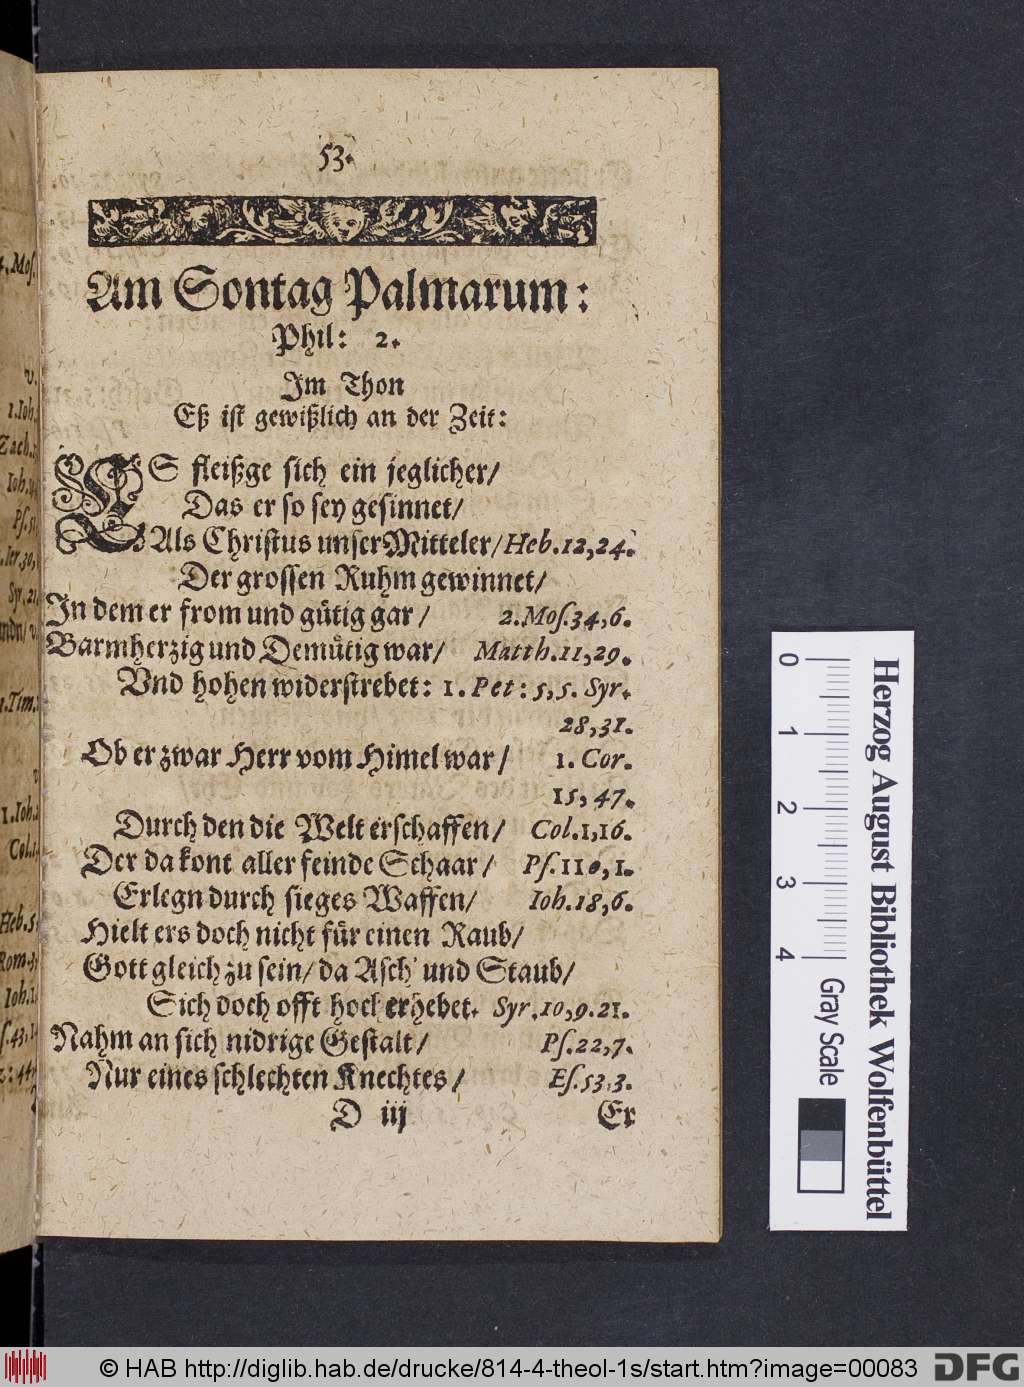 53.
Am Sontag Palmarum:
Phil: 2.
Im Thon
Eß ist gewißlich an der Zeit:
ES fleißge sich ein jeglicher/
Das er so sey gesinnet/
Als Christus unser Mitteler/ Heb. 12,24.
Der grossen Ruhm gewinnet/
In dem er from und gütig gar / 2. Mos. 34,6.
Barmherzig und Demütig war/ Matth. 11,29.
Vnd hohen widerstrebet: 1. Pet: 5,5. Syr.
28,31.
Ob er zwar Herr vom Himel war / 1. Cor.
15,47.
Durch den die Welt erschaffen / Col. 1,16.
Der da kont aller feinde Schaar / Ps. 110,1.
Erlegn durch sieges Waffen/ Ioh. 18,6.
Hielt ers doch nicht für einen Raub/
Gott gleich zu sein/ da Asch und Staub/
Sich doch offt hoch erhebet. Syr. 10,9.21.
Nahm an sich nidrige Gestalt / Ps. 22,7.
Nur eines schlechten Knechtes / Es. 53,3.
D iij Er
4. Mos.
v.
1. Ioh.
Zach.
Ioh.
Ps. 51
Ier. 30,
Syr. 21
1. Tim.
1. Ioh.
Col. 1
Heb. 5
Rom.
Ioh. 1
0 1 2 3 4
Gray Scale
Herzog August Bibliothek Wolfenbüttel
© HAB http://diglib.hab.de/drucke/814-4-theol-1s/start.htm?image=00083
DFG